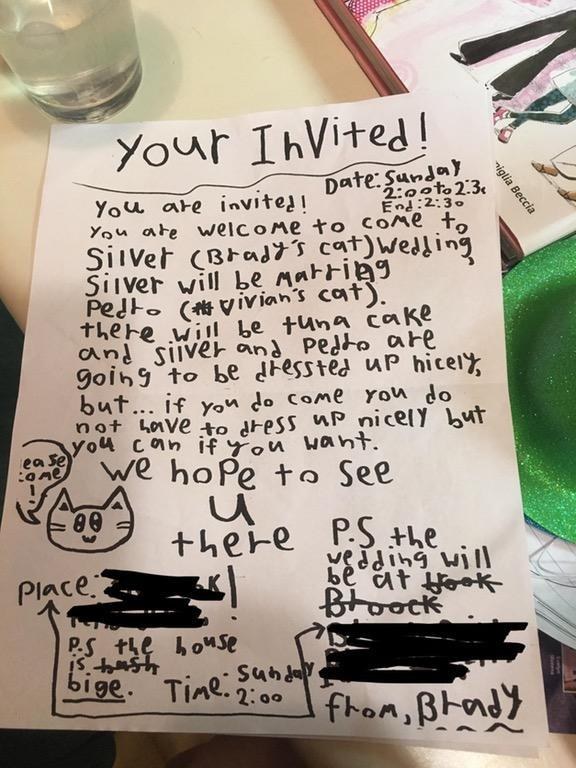 Your Invited!
Date: Sunday
2:00 to 2:30
End: 2:30
You are invited!
You are welcome to come to
Silver (Brady's cat) Wedding,
Silver will be Marring
Pedro (Vivian's cat).
there will be tuna cake
and Silver and Pedro are
going to be dressted up nicely,
but... if you do come you do
not have to dress up nicely but
you can if you want.
We hope to see
u
there
ease
ome
!
P.S the
wedding will
be at book
Bloock
Place:
!
P.S the house
is
bige.
Time: Sunday
2:00
from, Brady
niglia Beccia